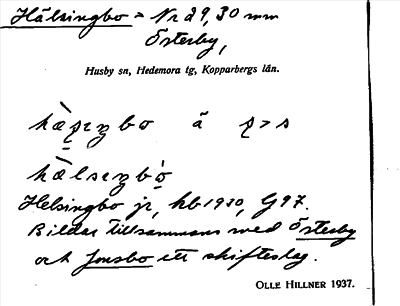 Hälsingbo = Nr 29, 30 mm
Österby,
Husby sn, Hedemora tg, Kopparbergs län.
å
Helsingbo jr, kb 1930, G 97.
Bildar tillsammans med Österby
och Jonsbo ett skifteslag.
OLLE HILLNER 1937.